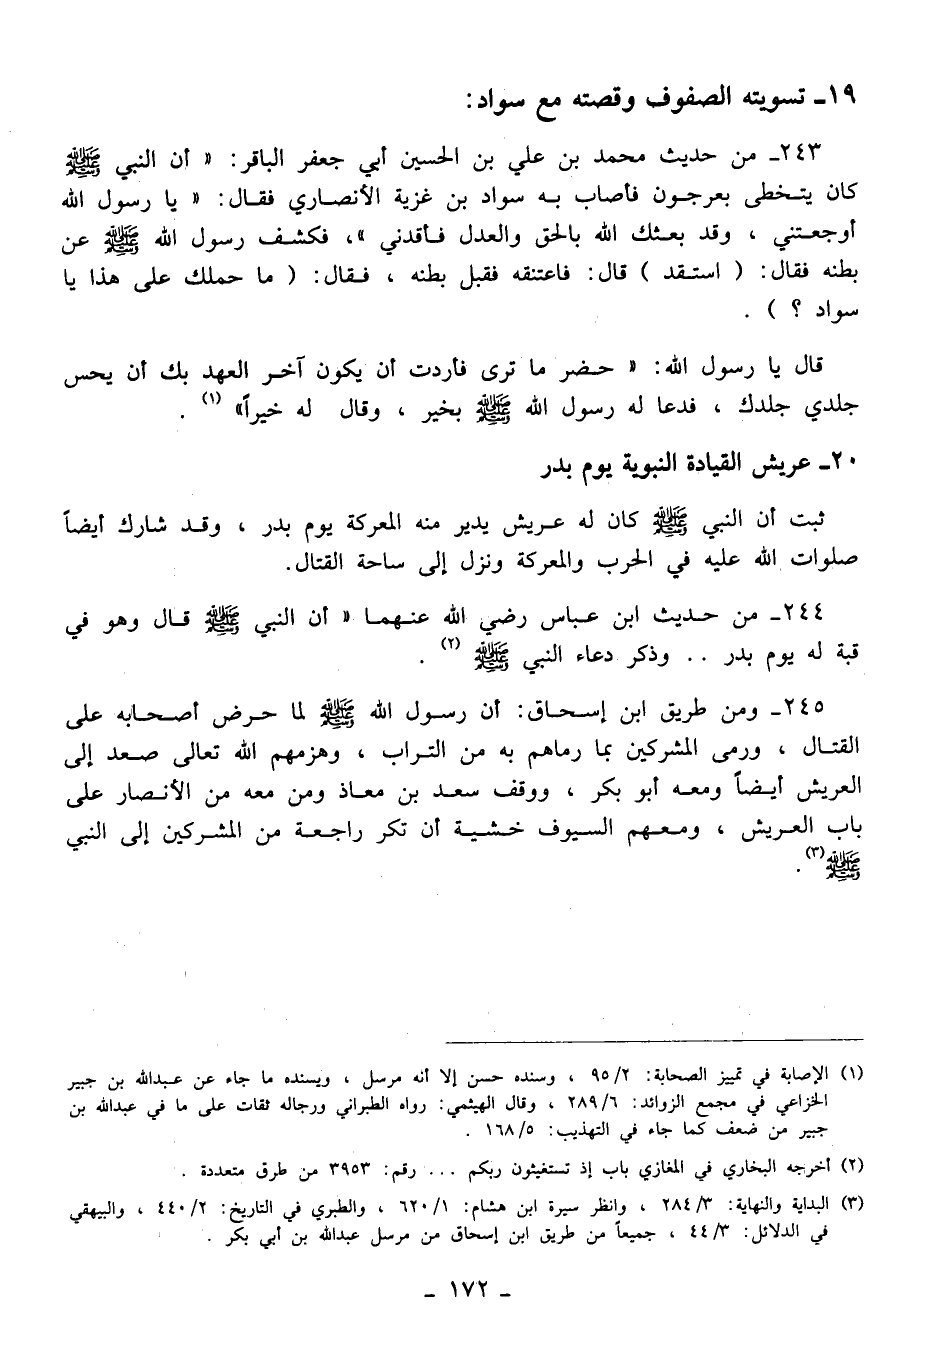 ١٩ـ تسويته الصفوف وقصته مع سواد:
٢٤٣ـ من حديث محمد بن علي بن الحسين أبي جعفر الباقر: « أن النبي ﷺ
كان يتخطى بعرجون فأصاب به سواد بن غزية الأنصاري فقال: « يا رسول الله
أوجعتني ، وقد بعثك الله بالحق والعدل فأقدني »، فكشف رسول الله ﷺ عن
بطنه فقال: ( استقد ) قال: فاعتنقه فقبل بطنه ، فقال: ( ما حملك على هذا يا
سواد ؟ ) .
قال يا رسول الله: « حضر ما ترى فأردت أن يكون آخر العهد بك أن يحس
جلدي جلدك ، فدعا له رسول الله ﷺ بخير ، وقال له خيراً» (١) .
٢٠ـ عريش القيادة النبوية يوم بدر
ثبت أن النبي ﷺ كان له عريش يدير منه المعركة يوم بدر ، وقد شارك أيضاً
صلوات الله عليه في الحرب والمعركة ونزل إلى ساحة القتال.
٢٤٤ـ من حديث ابن عباس رضي الله عنهما « أن النبي ﷺ قال وهو في
قبة له يوم بدر .. وذكر دعاء النبي ﷺ (٢) .
٢٤٥ـ ومن طريق ابن إسحاق: أن رسول الله ﷺ لما حرض أصحابه على
القتال ، ورمى المشركين بما رماهم به من التراب ، وهزمهم الله تعالى صعد إلى
العريش أيضاً ومعه أبو بكر ، ووقف سعد بن معاذ ومن معه من الأنصار على
باب العريش ، ومعهم السيوف خشية أن تكر راجعة من المشركين إلى النبي
ﷺ (٣) .
(١) الإصابة في تمييز الصحابة: ٩٥/٢ ، وسنده حسن إلا أنه مرسل ، ويسنده ما جاء عن عبدالله بن جبير
الخزاعي في مجمع الزوائد: ٢٨٩/٦ ، وقال الهيثمي: رواه الطبراني ورجاله ثقات على ما في عبدالله بن
جبير من ضعف كما جاء في التهذيب: ١٦٨/٥ .
(٢) أخرجه البخاري في المغازي باب إذ تستغيثون ربكم ... رقم: ٣٩٥٣ من طرق متعددة .
(٣) البداية والنهاية: ٢٨٤/٣ ، وانظر سيرة ابن هشام: ٦٢٠/١ ، والطبري في التاريخ: ٤٤٠/٢ ، والبيهقي
في الدلائل: ٤٤/٣ ، جميعاً من طريق ابن إسحاق من مرسل عبدالله بن أبي بكر .
ـ ١٧٢ ـ